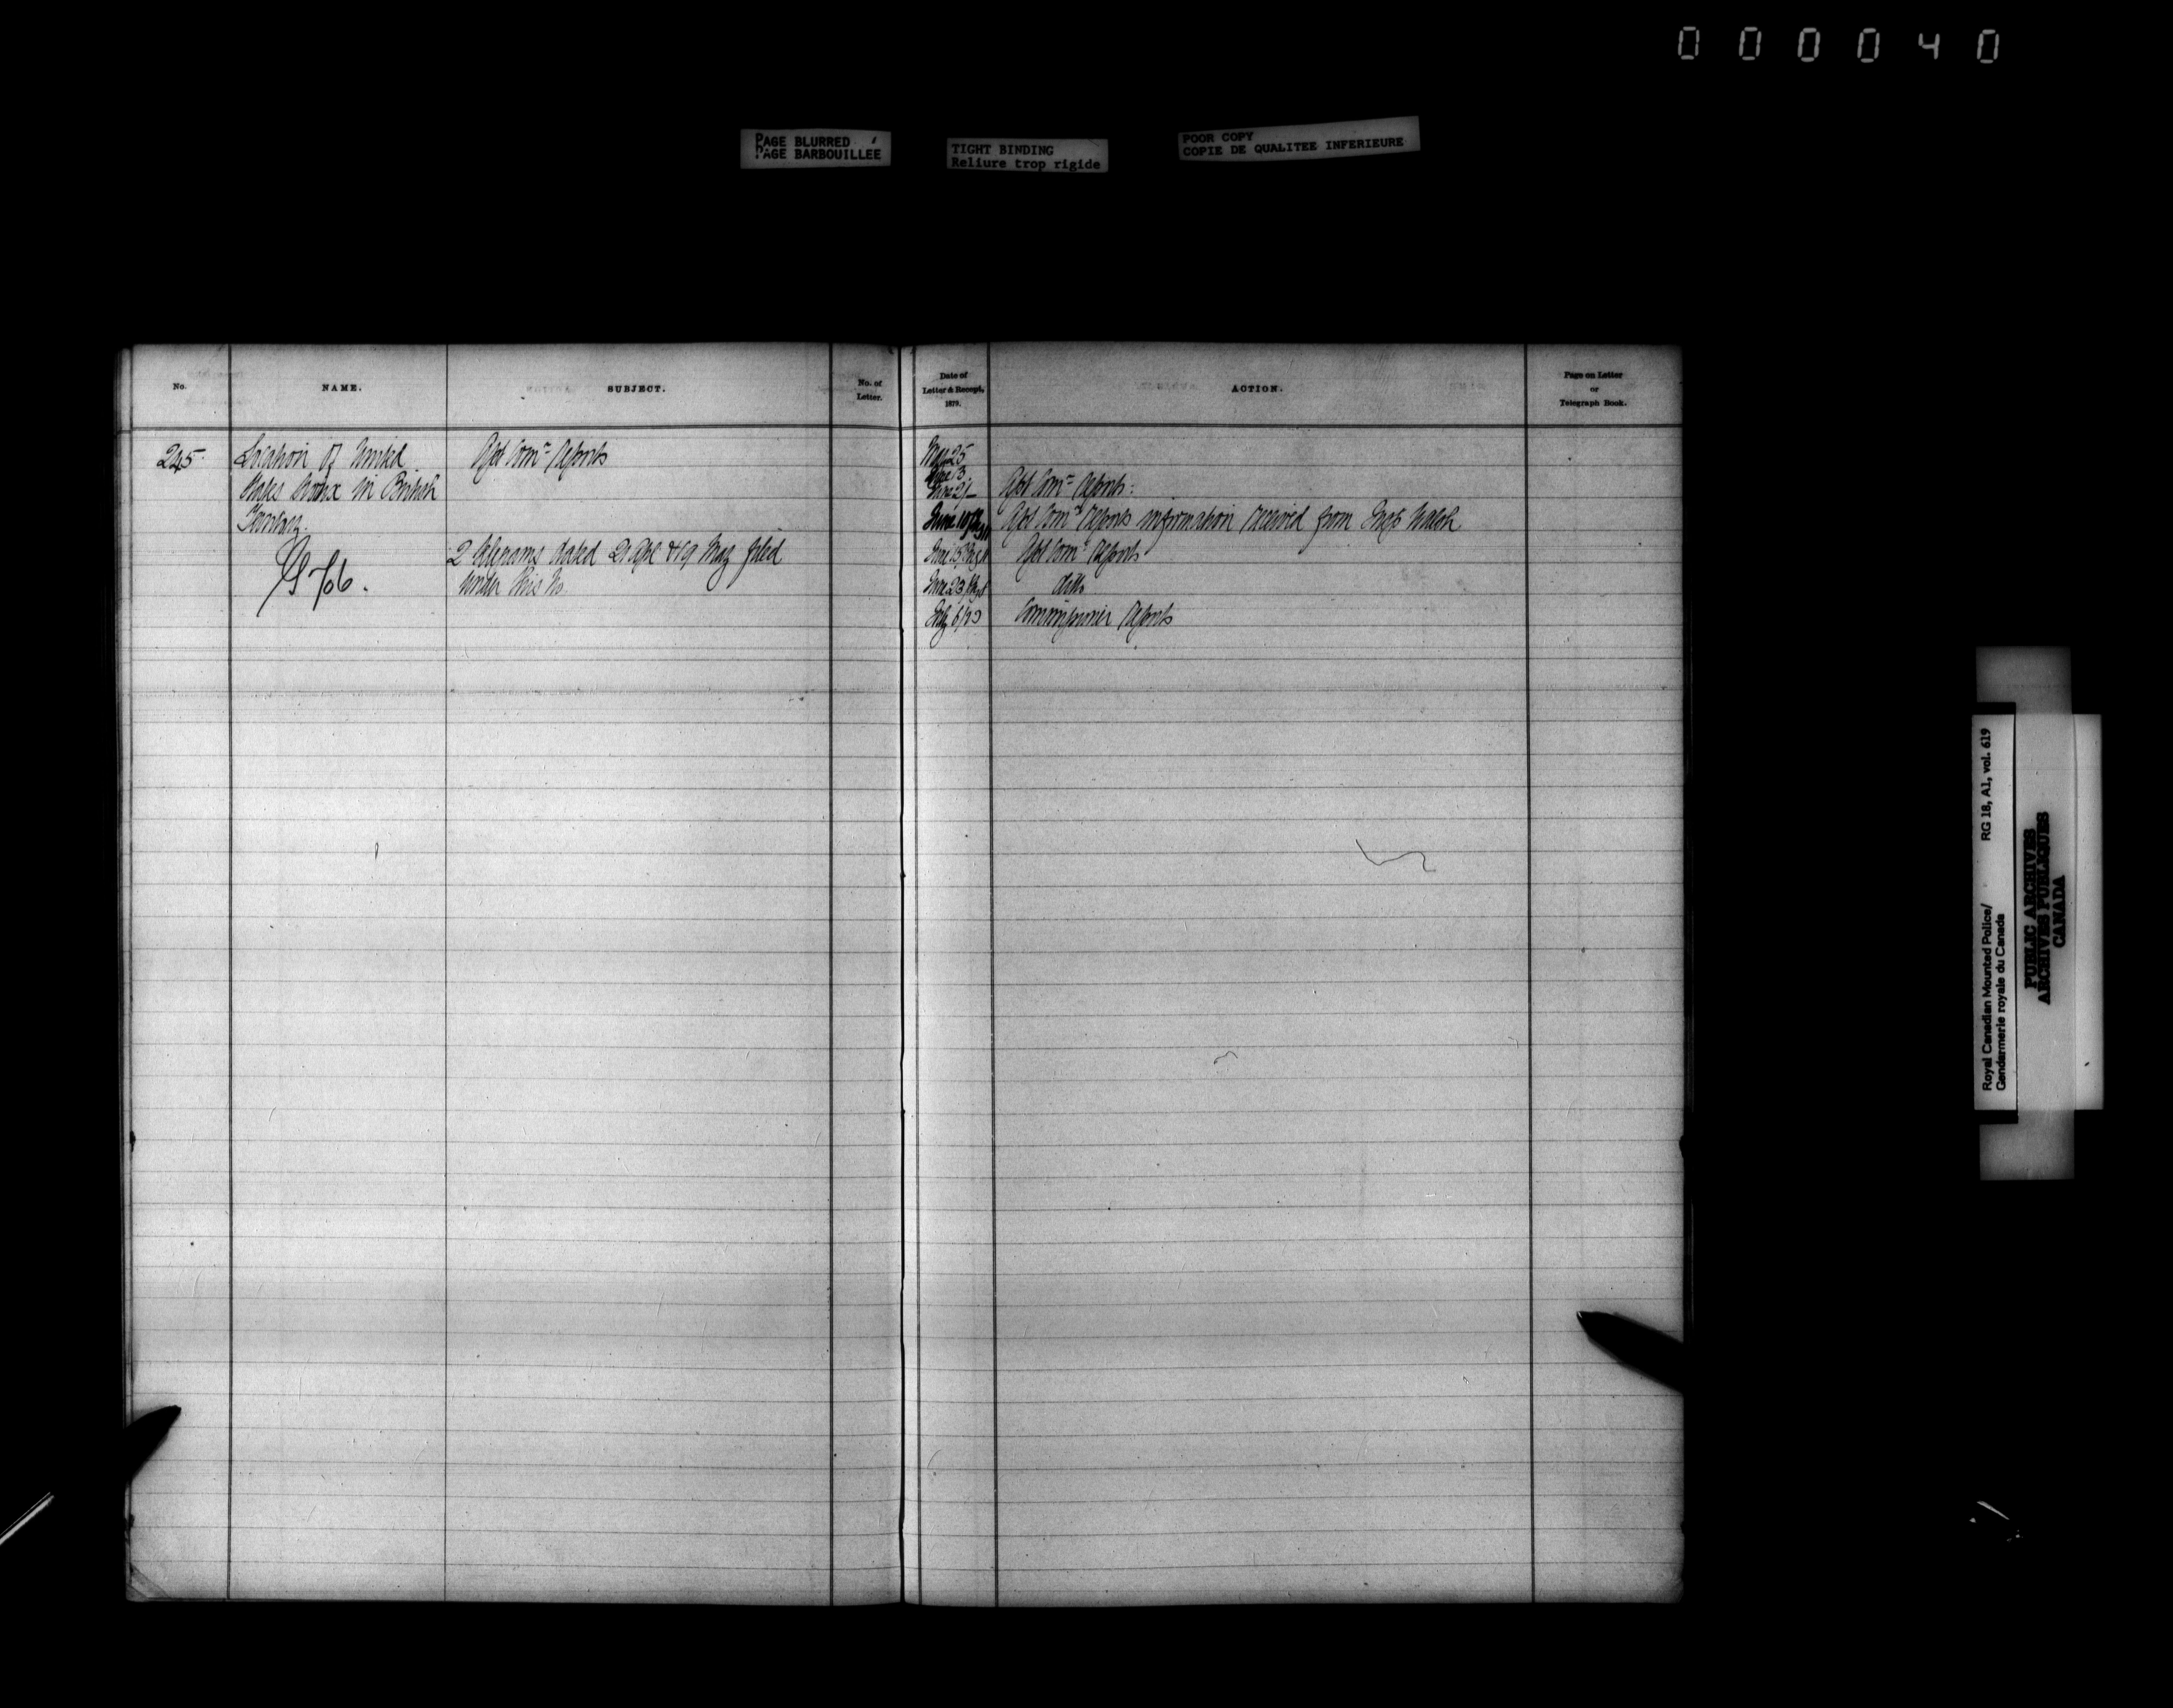 000040
PAGE BLURRED
PAGE BARBOUILLEE
TIGHT BINDING
Reliure trop rigide
POOR COPY
COPIE DE QUALITEE INFERIEURE
No.
NAME.
SUBJECT.
No. of
Letter.
Date of
Letter & Receipt,
1879.
ACTION.
Page on Letter
or
Telegraph Book.
245
Location of United
States Sioux in British
Territory.
Asst Comr reports
2 telegrams dated 21 Apl & 19 May filed
under this No
May 25
June 3
June 21
Asst Comr reports:
June 10
Asst Comr reports information received from Insp Walsh
June 15
Asst Comr reports
June 23
ditto
July 6/
Commissioner reports
Royal Canadian Mounted Police/
Gendarmerie royale du Canada
RG 18, A1, vol. 619
PUBLIC ARCHIVES
ARCHIVES PUBLIQUES
CANADA